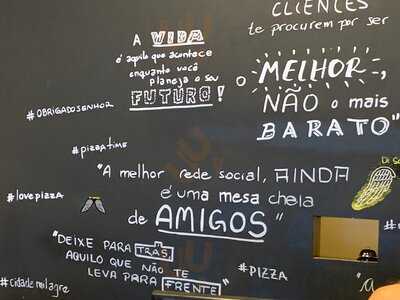 CLIENTES
te procurem por ser
o "MELHOR",
NÃO o mais
BARATO"
A VIDA
é aquilo que acontece
enquanto você
planeja o seu
FUTURO!
#OBRIGADOSENHOR
#pizzatime
"A melhor rede social, AINDA
é uma mesa cheia
de AMIGOS"
#lovepizza
"DEIXE PARA TRÁS,
AQUILO QUE NÃO TE
LEVA PARA FRENTE"
#PIZZA
#cidademilagre
"A